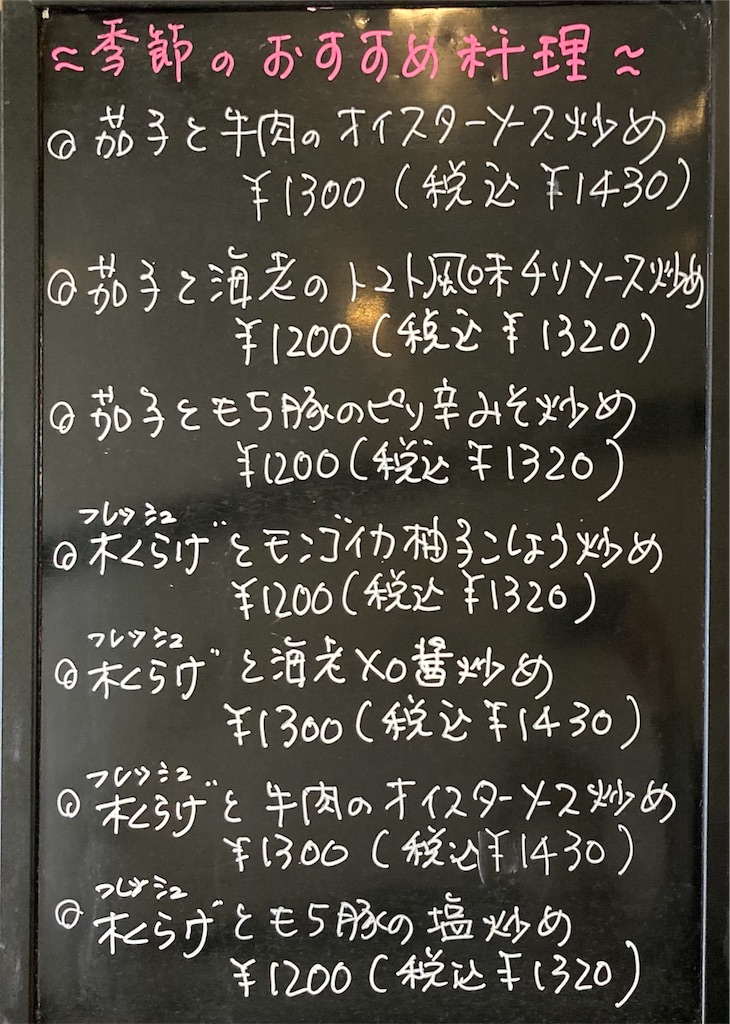 ~季節のおすすめ料理~
◎茄子と牛肉のオイスターソース炒め
¥1300(税込 ¥1430)
◎茄子と海老のトマト風味チリソース炒め
¥1200(税込 ¥1320)
◎茄子ともち豚のピリ辛みそ炒め
¥1200(税込 ¥1320)
フレッシュ
◎木くらげとモンゴイカ柚子こしょう炒め
¥1200(税込 ¥1320)
フレッシュ
◎木くらげと海老XO醤炒め
¥1300(税込 ¥1430)
フレッシュ
◎木くらげと牛肉のオイスターソース炒め
¥1300(税込 ¥1430)
フレッシュ
◎木くらげともち豚の塩炒め
¥1200(税込 ¥1320)